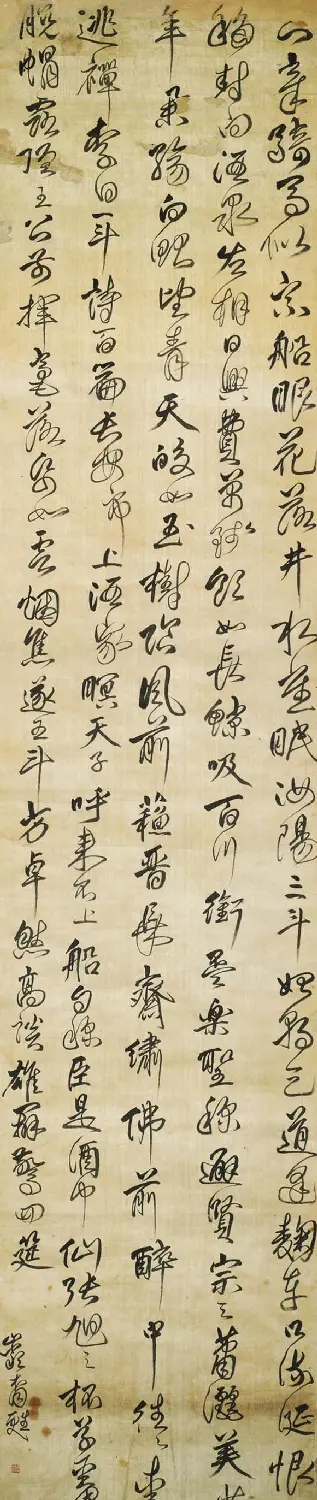 知章騎馬似乘船眼花落井水底眠汝陽三斗始朝天道逢麴車口流涎恨
移封向酒泉左相日興費萬錢飲如長鯨吸百川銜杯樂聖稱避賢宗之蕭灑美少
年舉觴白眼望青天皎如玉樹臨風前蘇晉長齋繡佛前醉中往々愛
逃禪李白一斗詩百篇長安市上酒家眠天子呼來不上船自稱臣是酒中仙張旭三杯草聖
脫帽露頂王公前揮毫落紙如雲烟焦遂五斗方卓然高談雄辯驚四筵